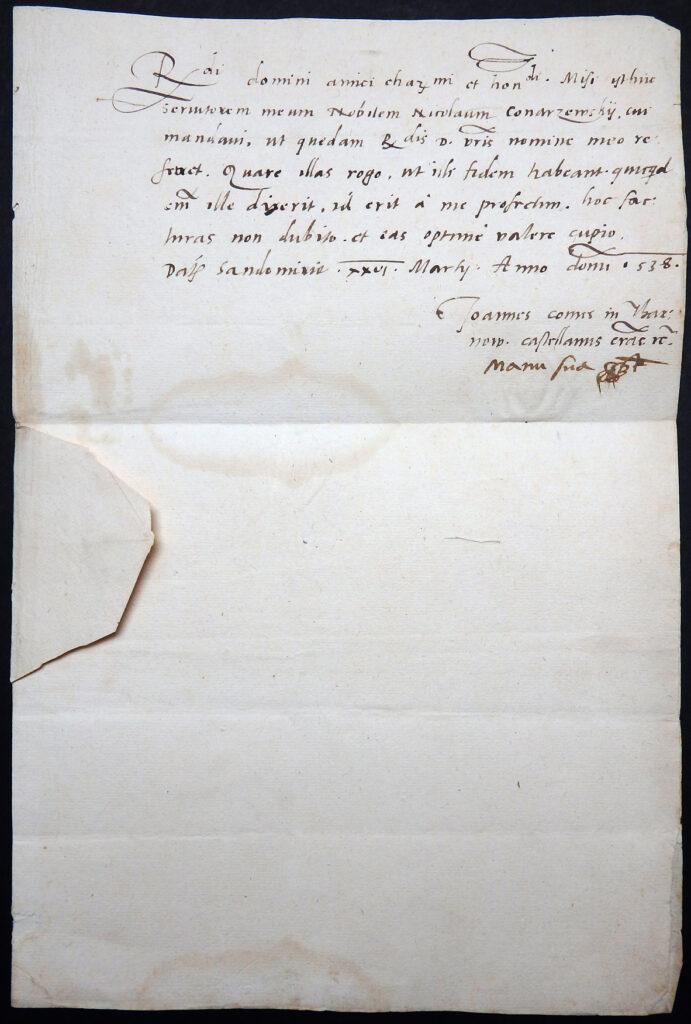 Rdi domini amici charmi et hondi. Misi isthuc
Servitorem meum Nobilem Nicolaum Conarzewskij, cui
mandavi, ut quedam R dis D. vris nomine meo re
ferret. Quare illas rogo, ut illi fidem habeant. quicqd
em ille dixerit, id erit a me profectum. hoc fac=
turas non dubito. et eas optime valere cupio.
Dat Sandomirie .XXVI. Martij. Anno domi 1538.
Joannes comes in Thar=
now. castellanus cracs
Manu sua sspt